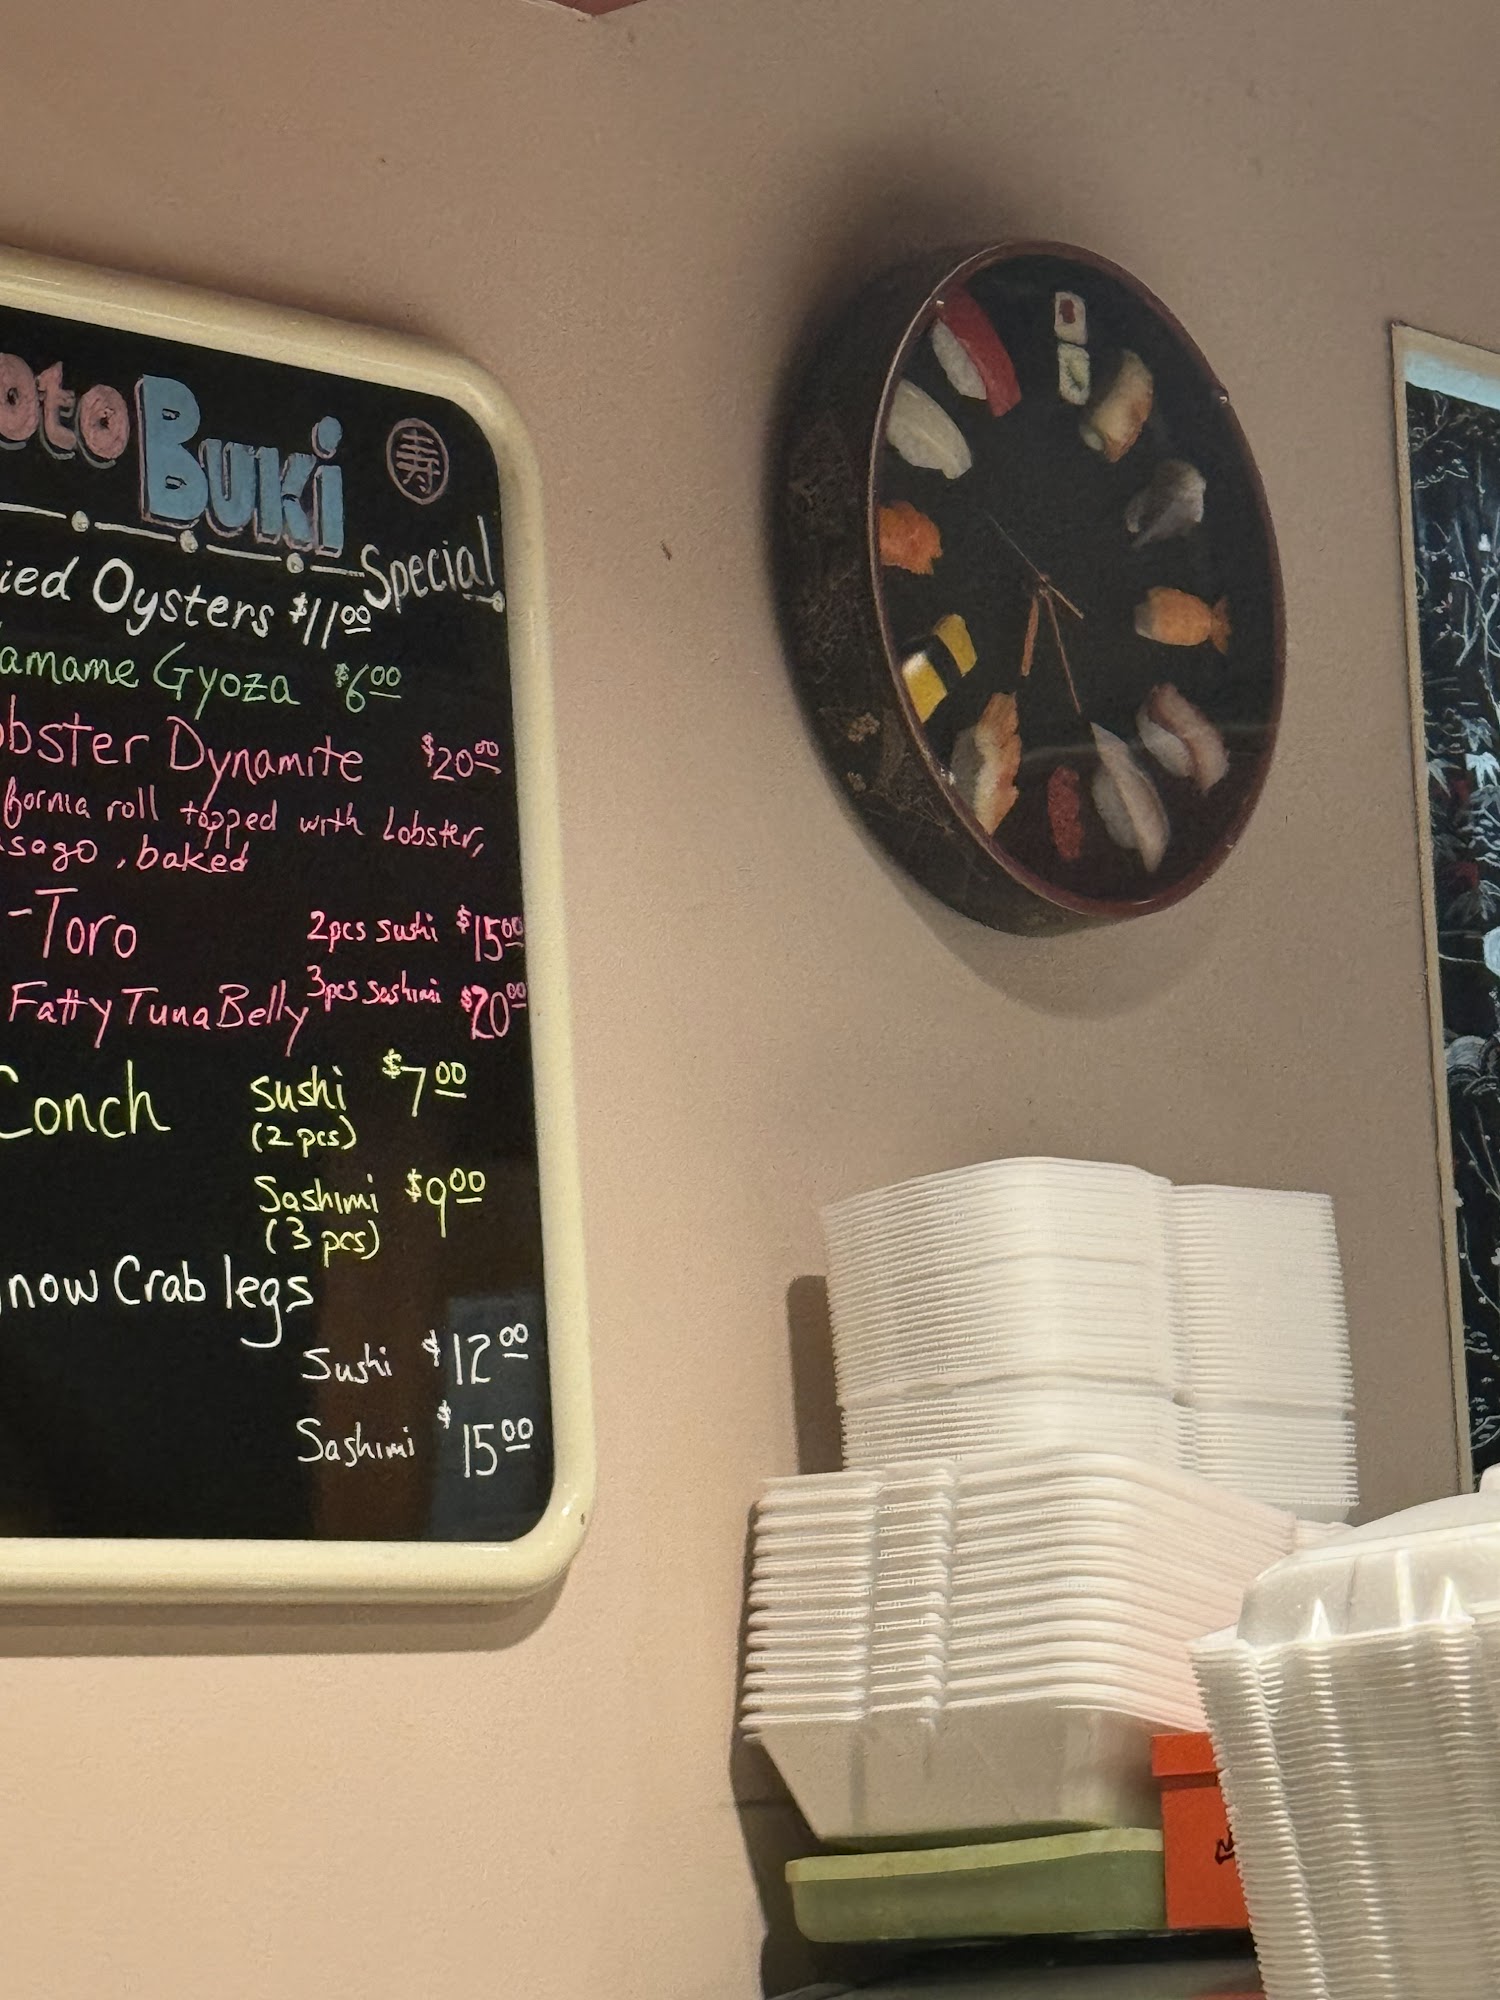 oto Buki 寿
Special
ied Oysters $11.00
amame Gyoza $6.00
obster Dynamite $20.00
fornia roll topped with Lobster,
sago, baked
-Toro 2pcs sushi $15.00
Fatty Tuna Belly 3pcs sashimi $20.00
Conch sushi $7.00
(2 pcs)
Sashimi $9.00
(3 pcs)
now Crab legs
Sushi $12.00
Sashimi $15.00